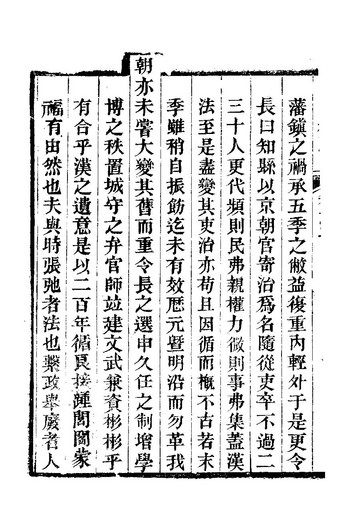 藩鎭之禍承五季之敝益復重内輕外于是更令
長曰知縣以京朝官寄治爲名隨從吏卒不過二
三十人更代頻則民弗親權力微則事弗集蓋漢
法至是盡變其吏治亦苟且因循而槪不古若末
季雖稍自振飭迄未有效厯元曁明沿而勿革我
朝亦未嘗大變其舊而重令長之選申久任之制增學
博之秩置城守之弁官師竝建文武兼資彬彬乎
有合乎漢之遺意是以二百年循良接踵閭閻蒙
福有由然也夫與時張弛者法也藥政舉廢者人